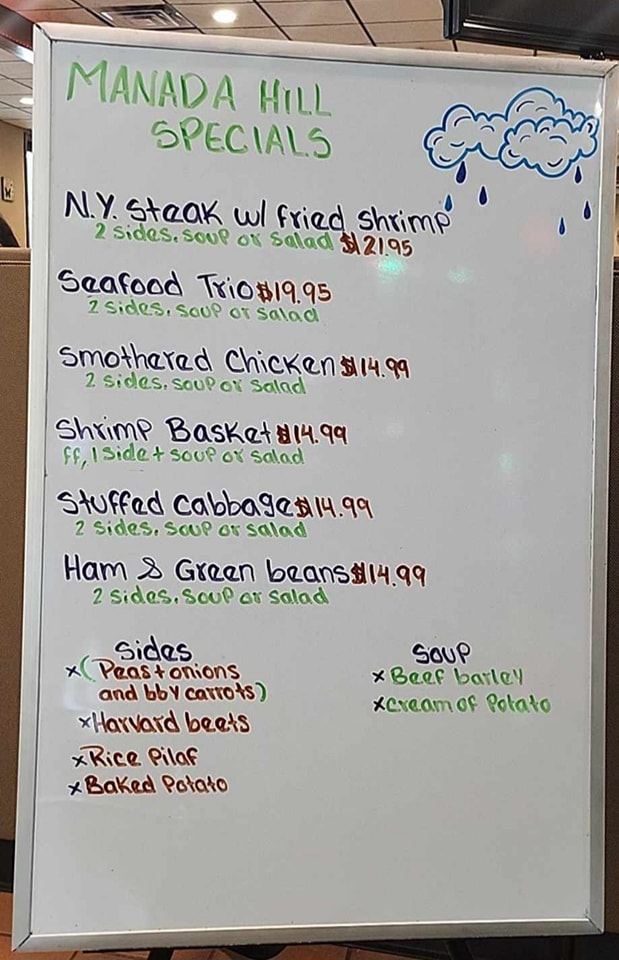 MANADA HILL
SPECIALS
N.Y. Steak w/ fried shrimp
2 sides, soup or salad $21.95
Seafood Trio $19.95
2 sides, soup or salad
Smothered Chicken $14.99
2 sides, soup or salad
Shrimp Basket $14.99
ff, 1 side + soup or salad
Stuffed Cabbage $14.99
2 sides, soup or salad
Ham & Green beans $14.99
2 sides, soup or salad
Sides
x (Peas + onions
and bby carrots)
x Harvard beets
x Rice Pilaf
x Baked Potato
Soup
x Beef barley
x Cream of Potato